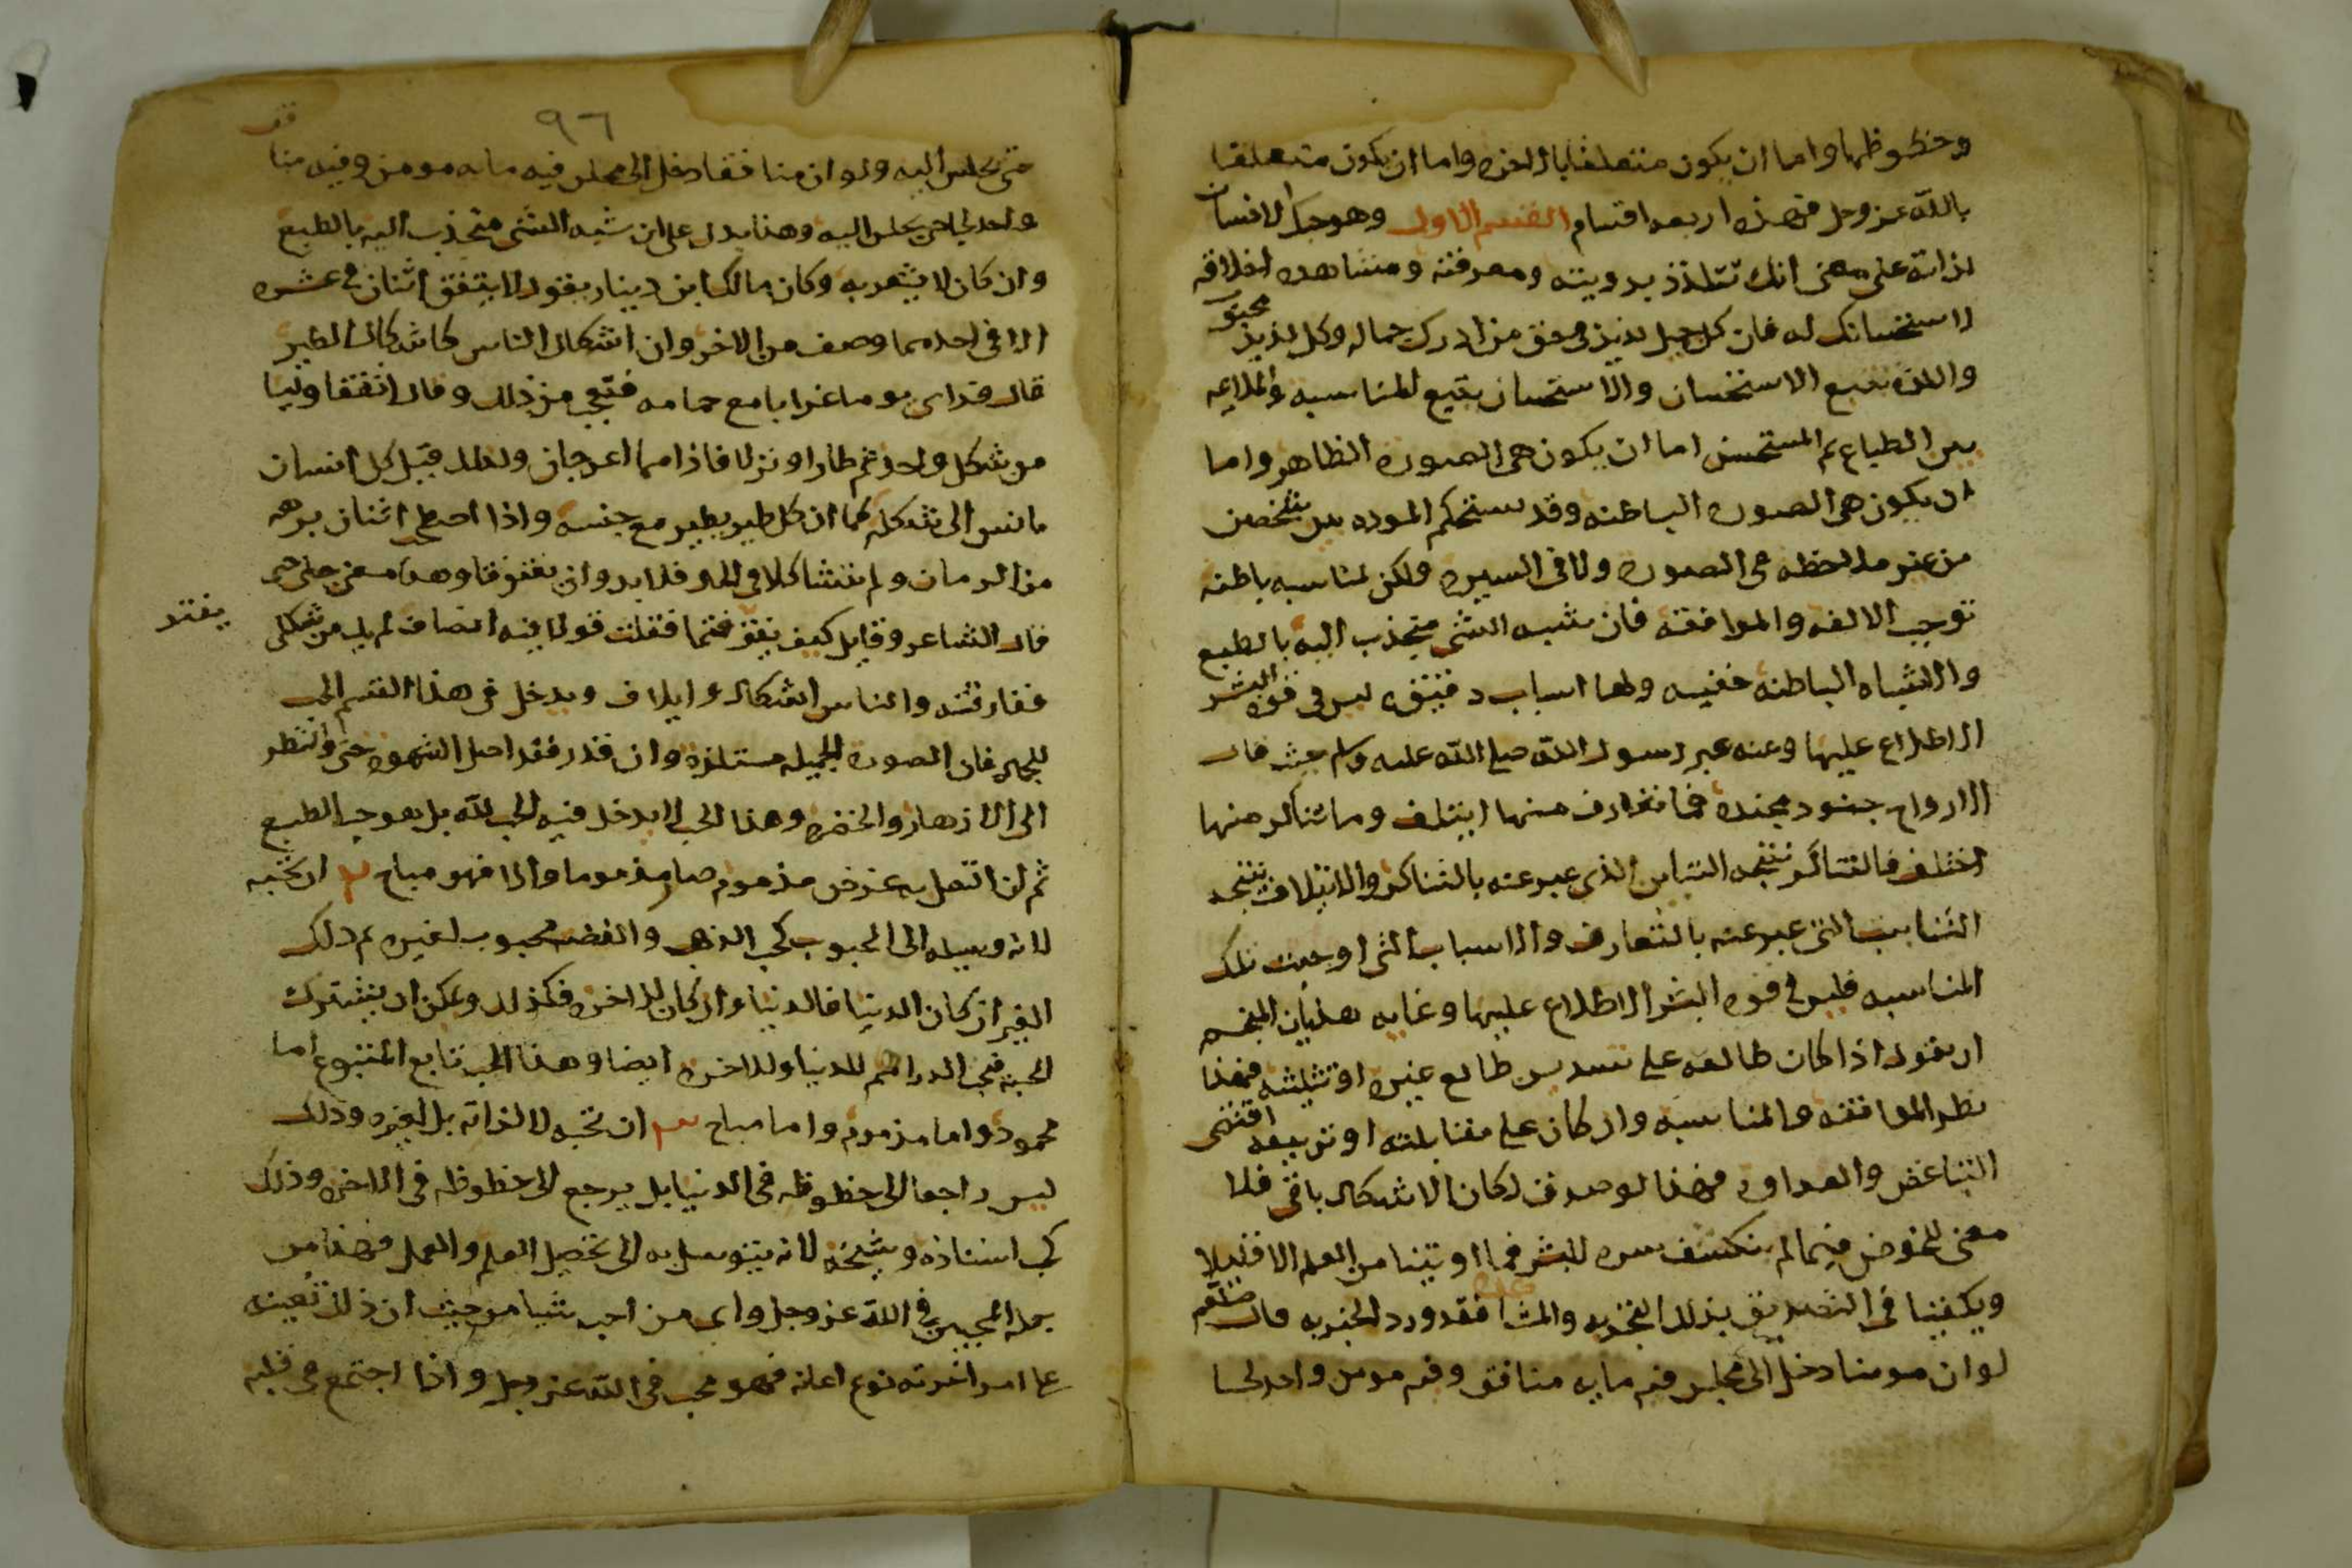 وحظوظها واما ان يكون متعلقا بالاخره واما ان يكون متعلقا
بالله عز وجل فهذه اربعه اقسام القسم الاول وهو حبك الانسان
لذاته على معنى انك تتلذذ برويته ومعرفته ومشاهده اخلاقه
لاستحسانك له فان كل جميل لذيذ فى حق من ادرك جماله وكل لذيذ محبوب
واللذه تتبع الاستحسان والاستحسان يتبع المناسبه والملايمه
بين الطباع ثم المستحسن اما ان يكون هى الصوره الظاهر واما
ان يكون هى الصوره الباطنه وقد تستحكم الموده بين شخصين
من غير ملاحظه فى الصوره ولا فى السيره ولكن لمناسبه باطنه
توجب الالفه والموافقه فان شبه الشى منجذب اليه بالطبع
والاشباه الباطنه خفيه ولها اسباب دقيقه ليس فى قوه البشر
الاطلاع عليها وعنه عبر رسول الله صلى الله عليه وسلم حيث قال
الارواح جنود مجنده فما تعارف منها ايتلف وما تناكر منها
اختلف فالتناكر نتيجه التباين الذى عبر عنه بالتناكر والايتلاف نتيجه
التناسب التى عبر عنه بالتعارف والاسباب التى اوجبت تلك
المناسبه فليس فى قوه البشر الاطلاع عليها وغايه هذيان المنجم
ان يقول اذا كان طالعه على تسديس طالع غيره او تثليثه فهذا
نظر الموافقه والمناسبه وان كان على مقابلته او تربيعه اقتضى
التباغض والعداوه فهذا لو صدق لكان الاشكال باقى فلا
معنى للخوض فيما لم ينكشف سره للبشر فما اوتينا من العلم الا قليلا
ويكفينا فى التصديق بذلك التجربه والمشا هده فقد ورد الخبر به قال صلعم
لو ان مومنا دخل الى مجلس فيه مايه منافق وفيه مومن واحد لجا
٩٦
قف
حتى يجلس اليه ولو ان منافقا دخل الى مجلس فيه مايه مومن وفيه منا
واحد لجا حتى يجلس اليه وهذا يدل على ان شبه الشى منجذب اليه بالطبع
وان كان لا يشعر به وكان مالك ابن دينار يقول لا يتفق اثنان فى عشره
الا فى احدهما وصف من الاخر وان اشكال الناس كاشكال الطير
قال فراى يوما غرابا مع حمامه فتعجب من ذلك وقال اتفقا وليسا
من شكل واحد ثم طارا ونزلا فاذا هما اعرجان ولذلك قيل كل انسان
يانس الى شكله كما ان كل طير يطير مع جنسه واذا اصطحب اثنان برهه
من الزمان ولم يتشاكلا فى الحال فلا بد وان يفترقا وهذا معنى خفى حتى
قال الشاعر وقايل كيف تفرقتما فقلت قولا فيه انصاف لم يك من شكلى
يفتر
ففارقته والناس اشكال وايلاف ويدخل فى هذا القسم الحب
للجمال فان الصوره الجميله مستلذه وان قدر فقد اصل الشهوه حتى والنظر
الى الازهار والخضره وهذا الحب لا يدخل فيه الحب لله بل هو حب الطبع
ثم ان اتصل به غرض مذموم صار مذموما والا فهو مباح ٢ ان تحبه
لانه وسيله الى المحبوب كحب الذهب والفضه محبوب لغيره ثم ذلك
الغير ان كان الدنيا فالدنيا وان كان للاخره فكذلك ويمكن ان يشترك
الحبه فحب الدراهم للدنيا وللاخره ايضا وهذا الحب تابع المتبوع اما
محمود واما مذموم واما مباح ٣ ان تحبه لا لذاته بل لغيره وذلك
ليس راجعا الى حظوظه فى الدنيا بل يرجع الى حظوظه فى الاخره وذلك
كحب استاذه وشيخه لانه يتوسل به الى تحصيل العلم والعمل فهذا من
جمله المحبين فى الله عز وجل واى من احب شيا من حيث ان ذلك تعينه
على امر اخرته نوع اعانه فهو محب فى الله عز وجل واذا اجتمع فى قلبه